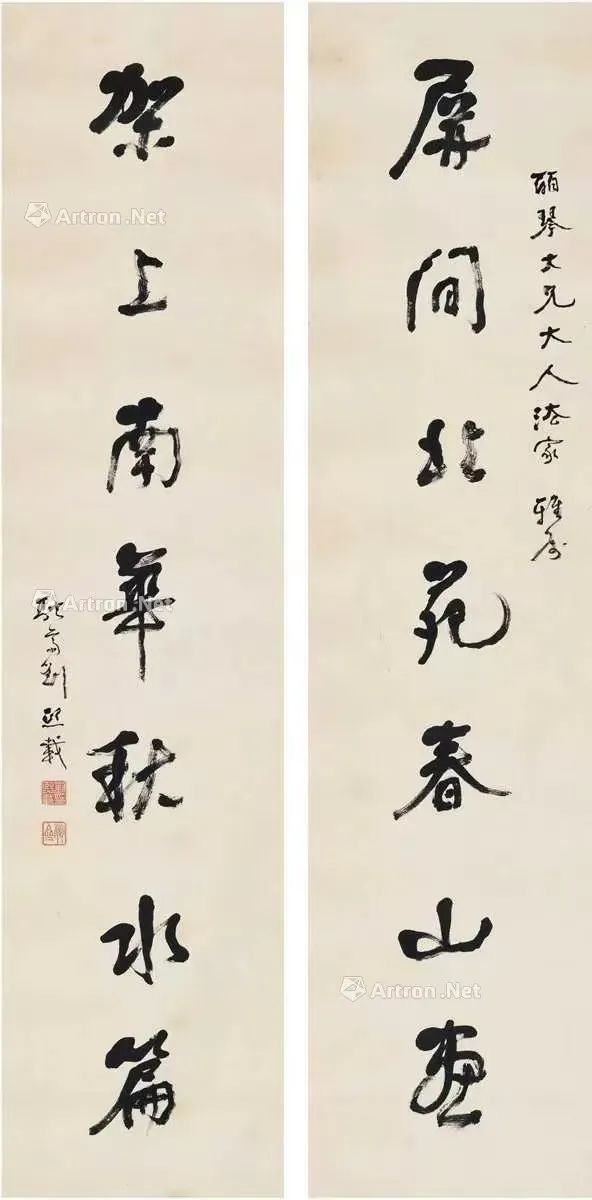 丽琴大兄大人法家 雅属
屏间北苑春山画
架上南华秋水篇
融斋刘熙载
Artron.Net
Artron.Net
Artron.Net